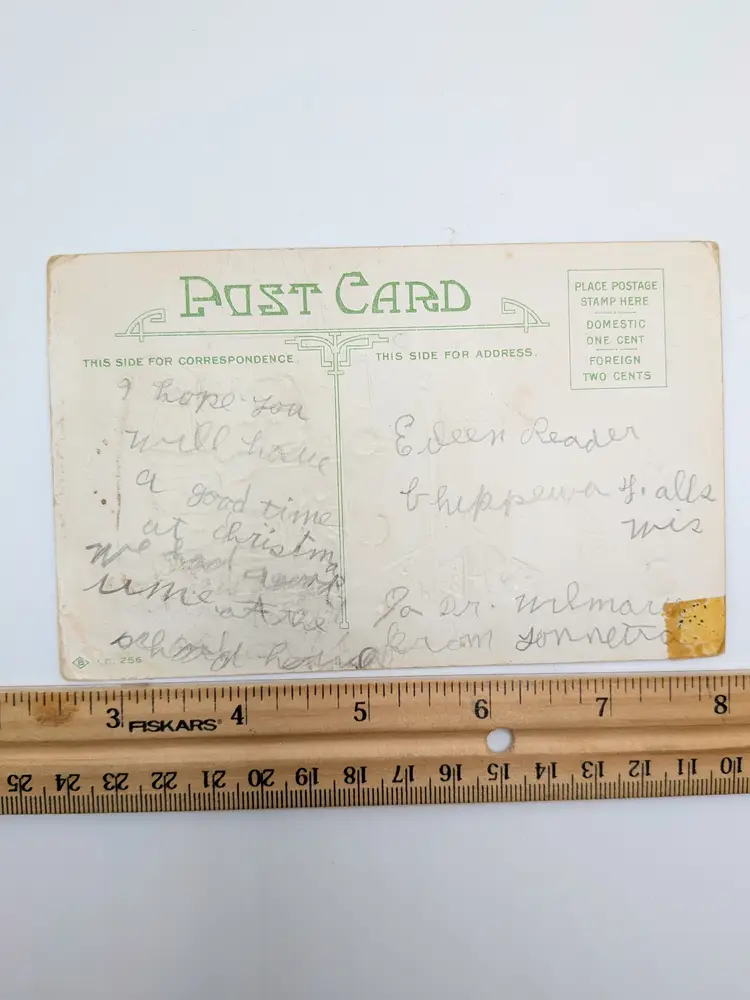 POST CARD
THIS SIDE FOR CORRESPONDENCE.
THIS SIDE FOR ADDRESS.
PLACE POSTAGE
STAMP HERE
DOMESTIC
ONE CENT
FOREIGN
TWO CENTS
I hope you
will have
a good time
at christm
we had
at the
school house
Reader
Chippewa Falls
Wis
from
256
3 FISKARS 4 5 6 7 8
25 24 23 22 21 20 19 18 17 16 15 14 13 12 11 10